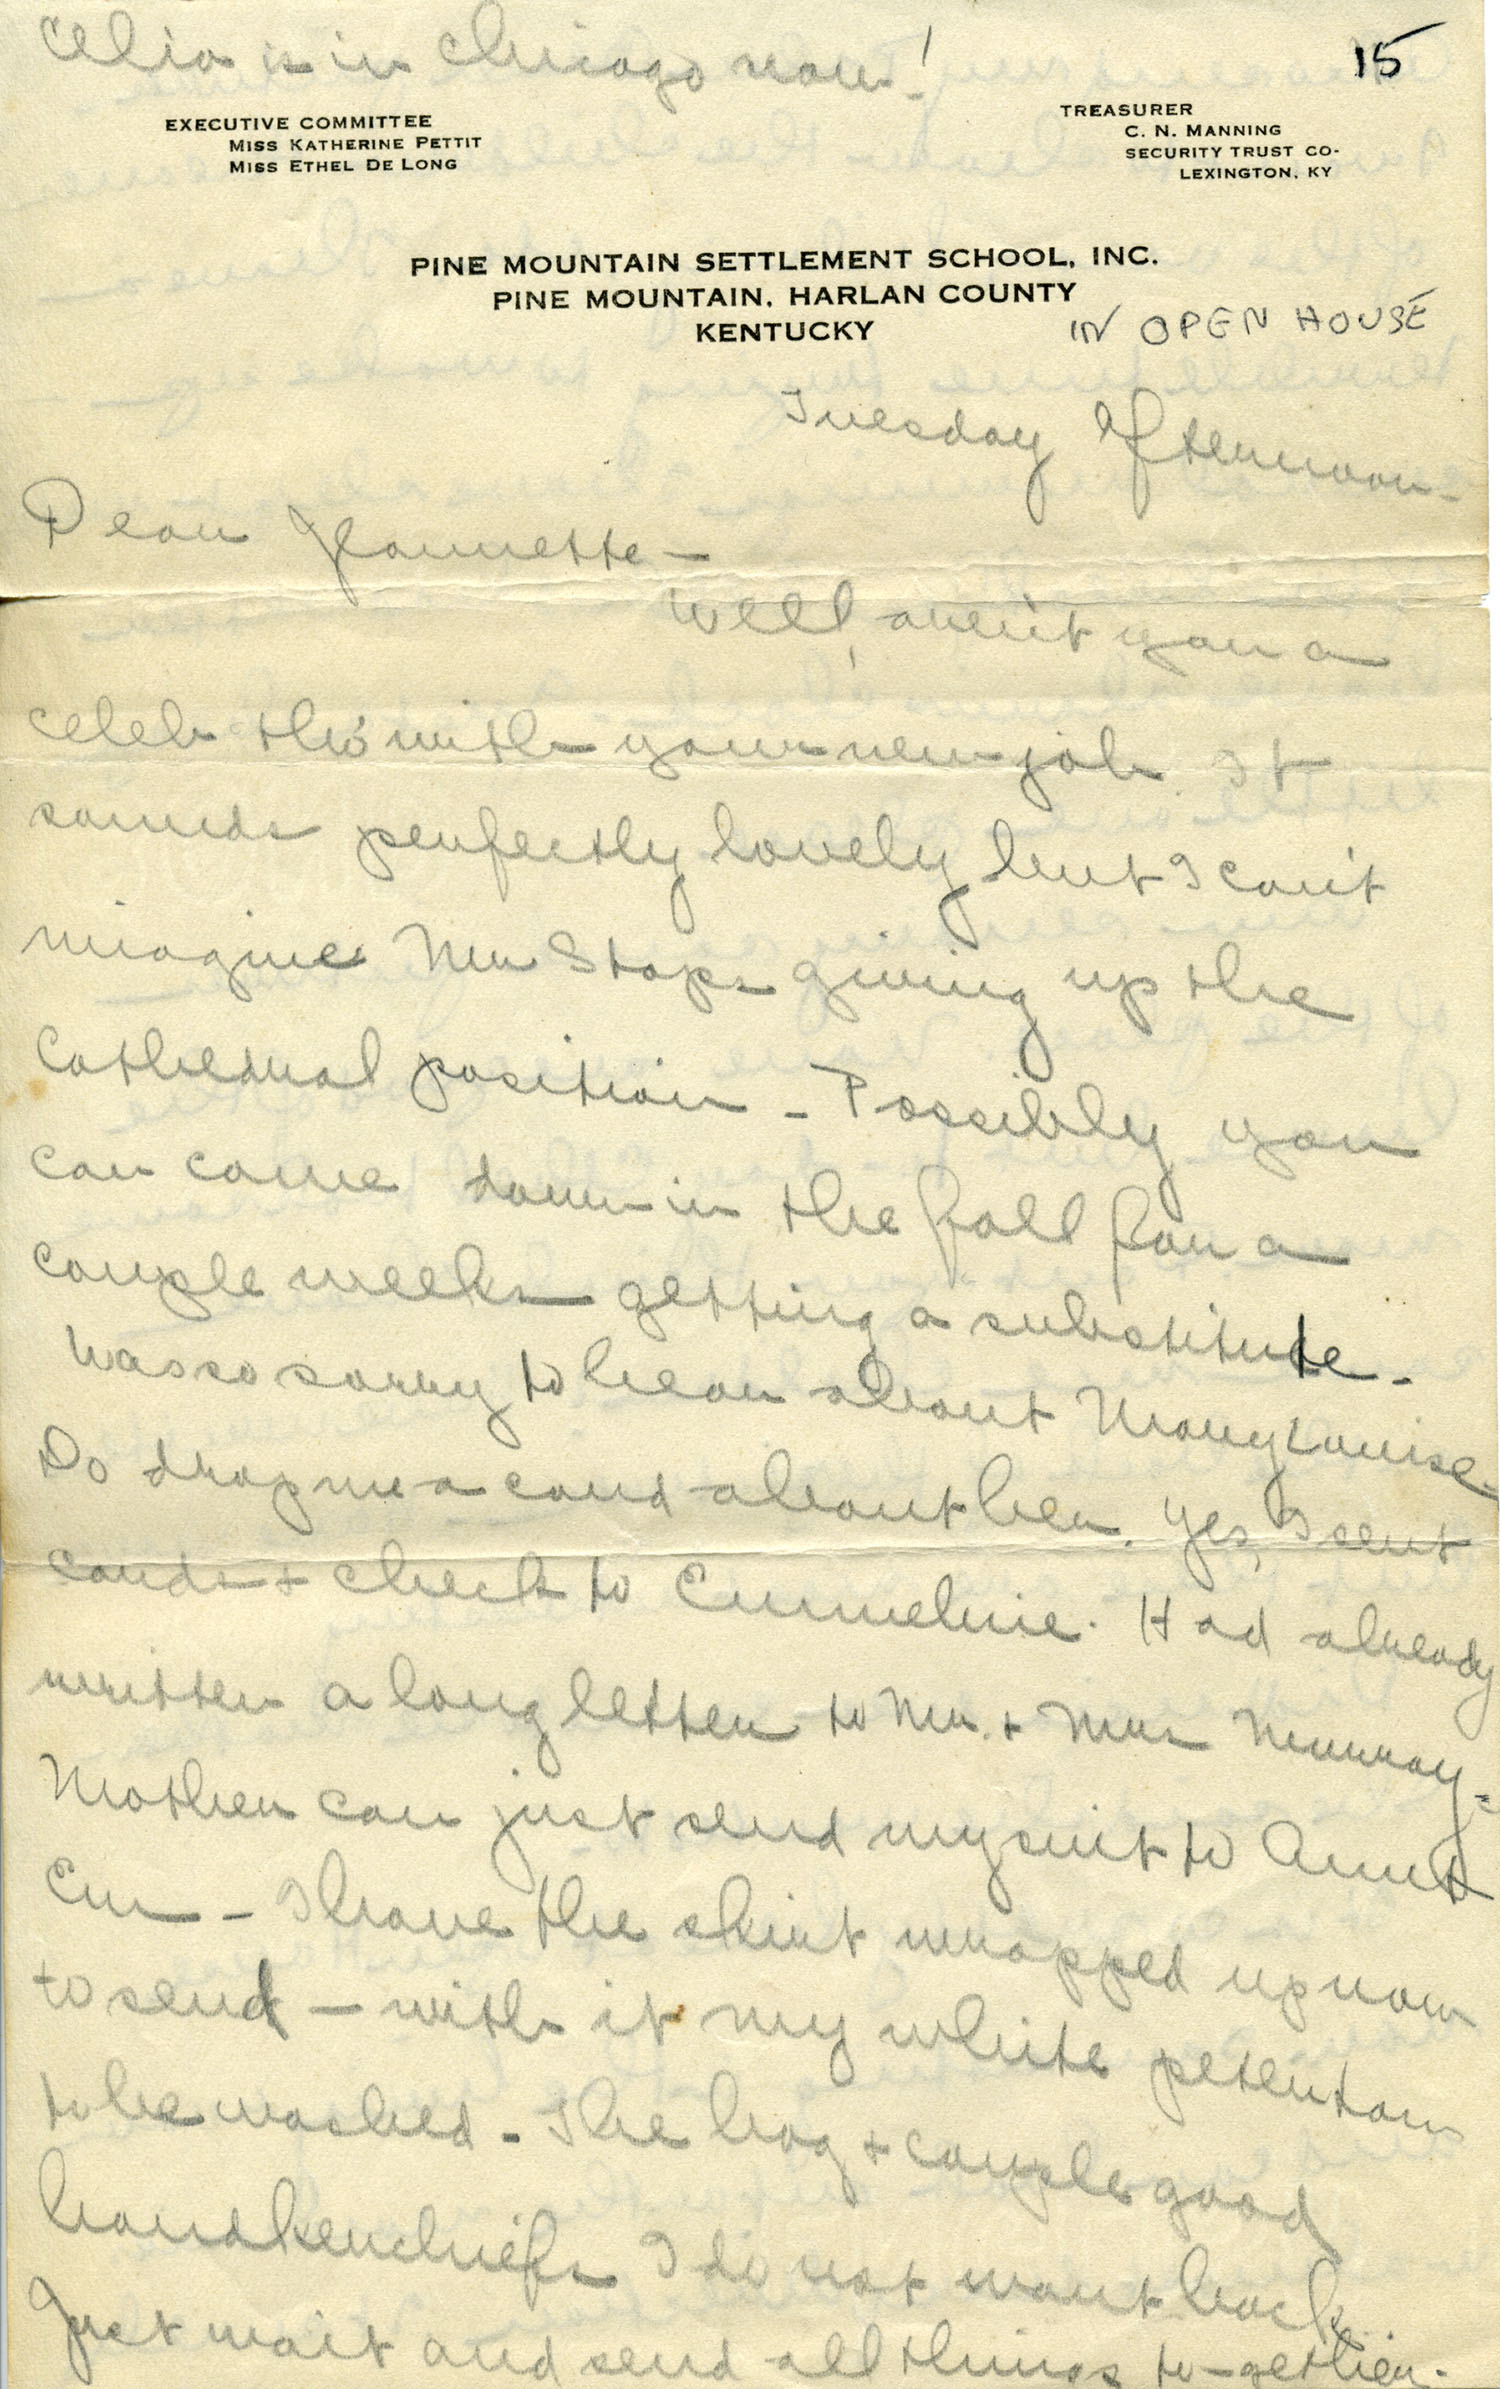 Celia is in Chicago now!
15
EXECUTIVE COMMITTEE
MISS KATHERINE PETTIT
MISS ETHEL DE LONG
TREASURER
C. N. MANNING
SECURITY TRUST CO-
LEXINGTON, KY
PINE MOUNTAIN SETTLEMENT SCHOOL, INC.
PINE MOUNTAIN, HARLAN COUNTY
KENTUCKY
IN OPEN HOUSE
Tuesday Afternoon-
Dear Jeannette-
Well, aren't you a
celeb tho' with your new job. It
sounds perfectly lovely but I can't
imagine Mr Staps giving up the
Cathedral position - Possibly you
can come down in the fall for a
couple weeks getting a substitute-
Was so sorry to hear about Mary Louise.
Do drop me a card about her. Yes, I sent
cards + check to Emmeline. Had already
written a long letter to Mr. + Mrs Murray-
Mother can just send my suit to Aunt
Em - I have the skirt wrapped up now
to send - with it my white
to be washed. The bag + couple good
handkerchiefs I do not want back.
Just wait and send all things to-gether.